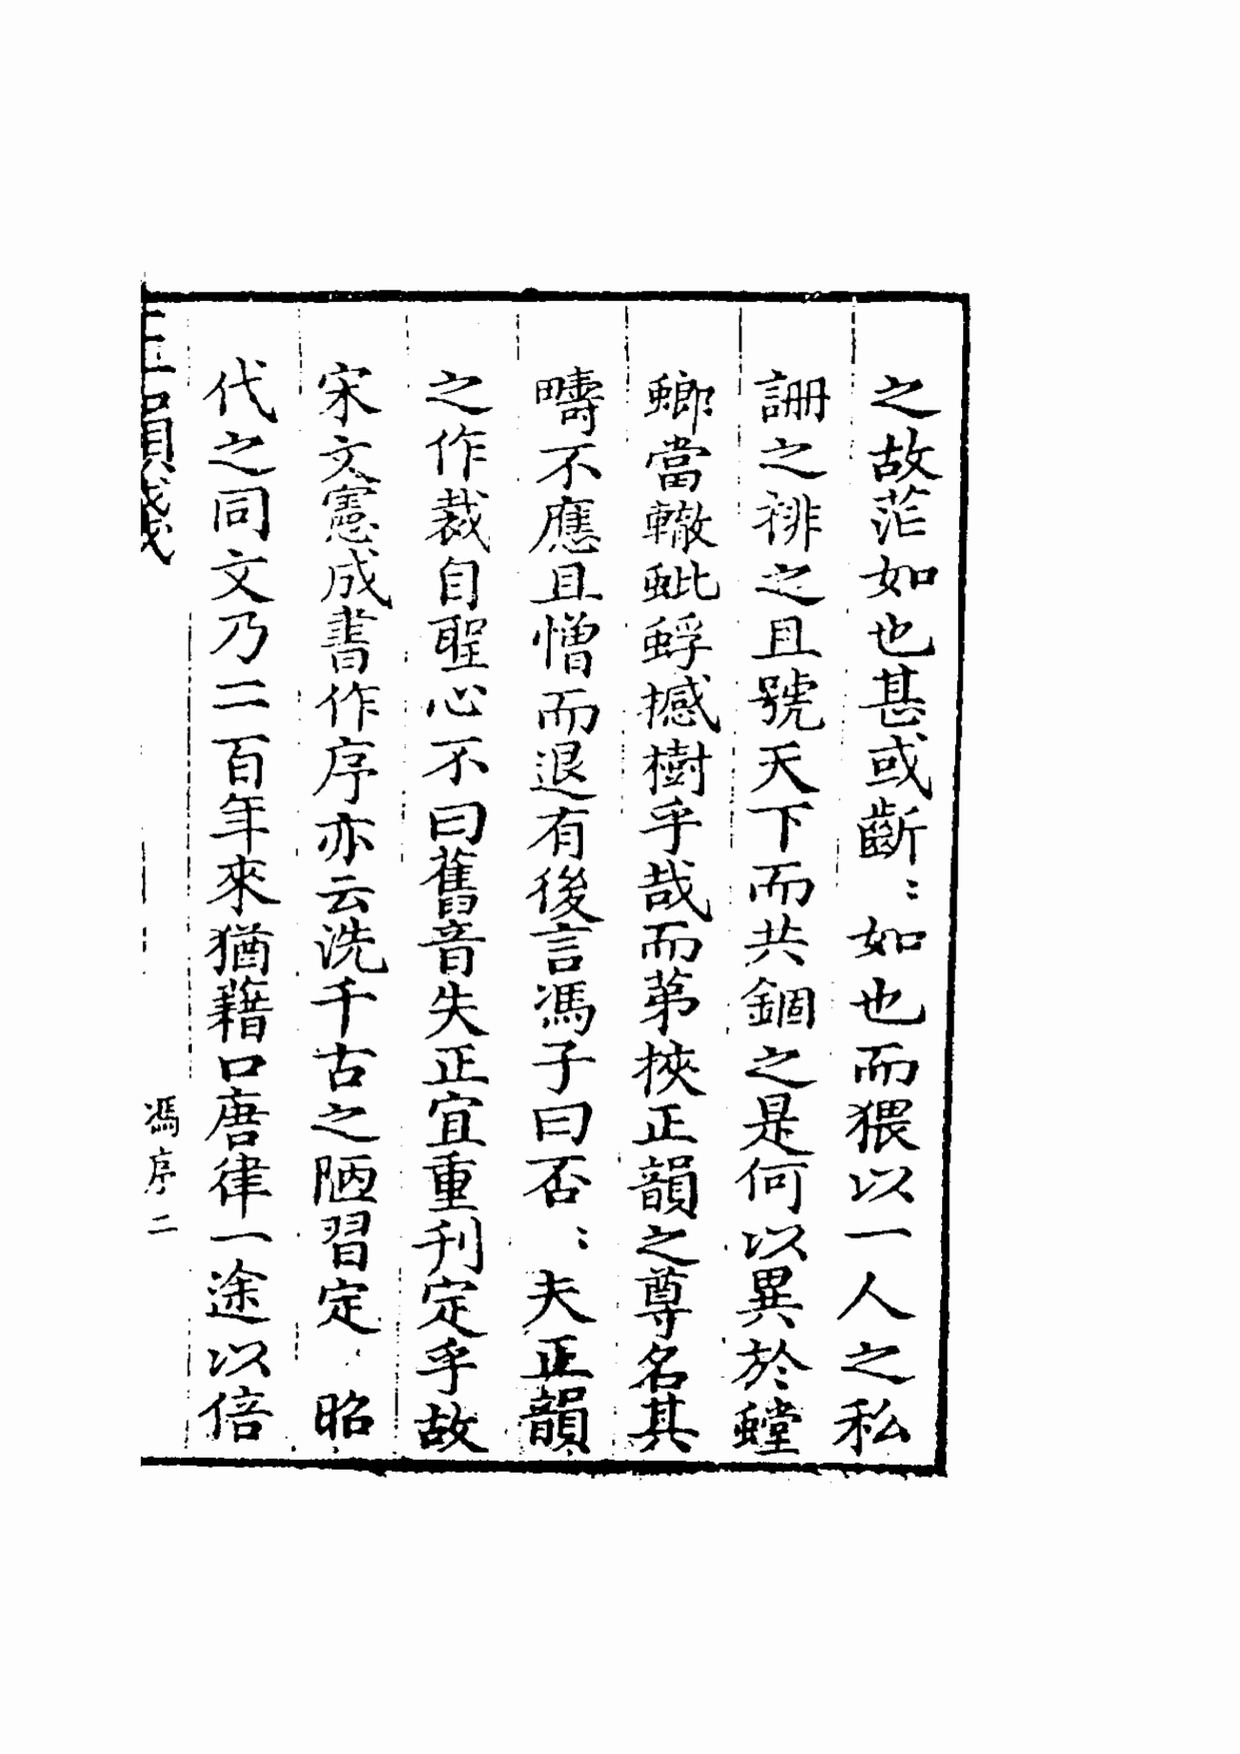 之故茫如也甚或齗〻如也而猥以一人之私
詶之䄃之且號天下而共錮之是何以異於螳
螂當轍蚍蜉撼樹乎哉而第挾正韻之尊名其
疇不應且憎而退有後言馮子曰否〻夫正韻
之作裁自聖心不曰舊音失正宜重刋定乎故
宋文憲成書作序亦云洗千古之陋習定 昭
代之同文乃二百年來猶藉口唐律一途以倍
正韻箋
馮序二